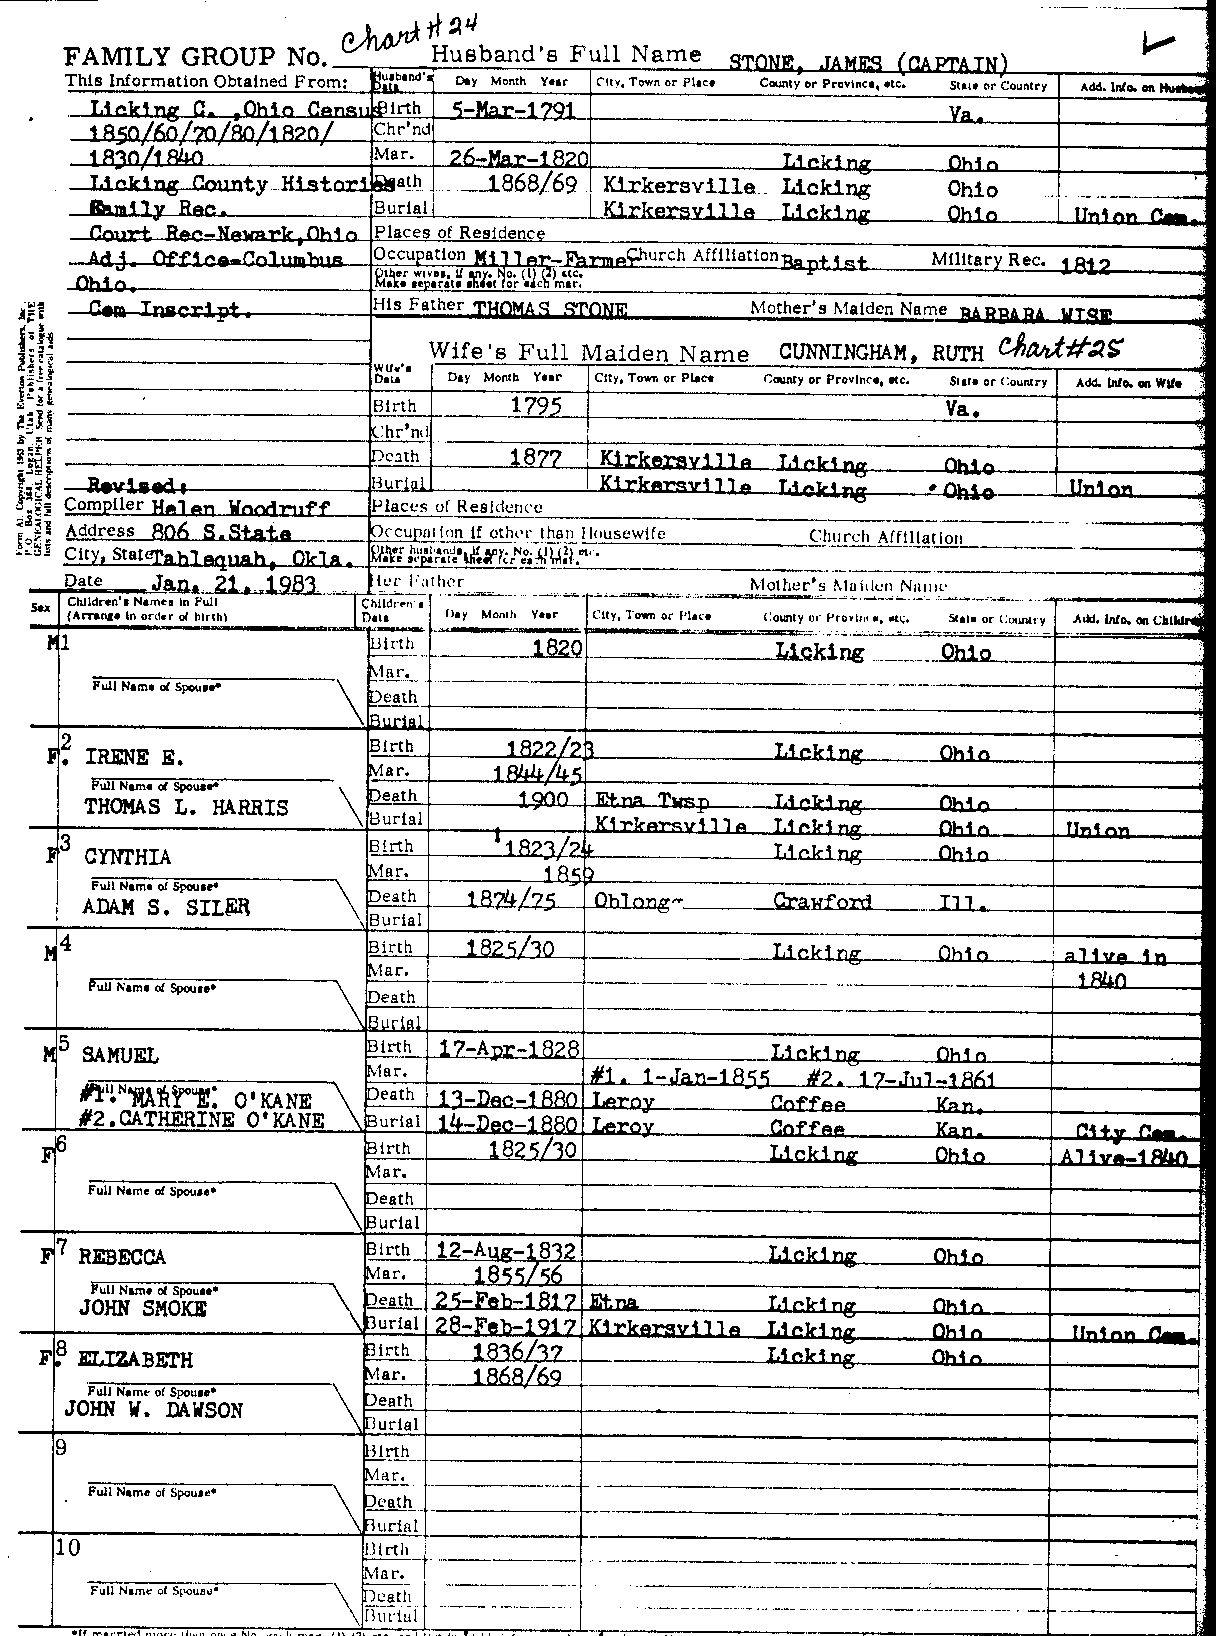 Chart # 24
FAMILY GROUP No. Husband's Full Name STONE, JAMES (CAPTAIN)
This Information Obtained From: Husband's Data Day Month Year City, Town or Place County or Province, etc. State or Country Add. Info. on Husband
Licking C. ,Ohio Census Birth 5-Mar-1791 Va.
1850/60/70/80/1820/ Chr'nd
1830/1840 Mar. 26-Mar-1820 Licking Ohio
Licking County Histories Death 1868/69 Kirkersville Licking Ohio
Family Rec. Burial Kirkersville Licking Ohio Union Cem.
Court Rec-Newark,Ohio Places of Residence
Adj. Office-Columbus Occupation Miller-Farmer Church Affiliation Baptist Military Rec. 1812
Ohio. Other wives, if any. No. (1) (2) etc. Make separate sheet for each mar.
Cem Inscript. His Father THOMAS STONE Mother's Maiden Name BARBARA WISE
Wife's Full Maiden Name CUNNINGHAM, RUTH Chart#25
Wife's Data Day Month Year City, Town or Place County or Province, etc. State or Country Add. Info. on Wife
Birth 1795 Va.
Chr'nd
Death 1877 Kirkersville Licking Ohio
Revised: Burial Kirkersville Licking Ohio Union
Compiler Helen Woodruff Places of Residence
Address 806 S.State Occupation if other than Housewife Church Affiliation
City, State Tahlequah, Okla. Other husbands, if any. No. (1) (2) etc. Make separate sheet for each mar.
Date Jan. 21, 1983 Her Father Mother's Maiden Name
Sex Children's Names in Full (Arrange in order of birth) Children's Data Day Month Year City, Town or Place County or Province, etc. State or Country Add. Info. on Children
M 1 Birth 1820 Licking Ohio
Mar.
Full Name of Spouse* Death
Burial
F. 2 IRENE E. Birth 1822/23 Licking Ohio
Mar. 1844/45
Full Name of Spouse* THOMAS L. HARRIS Death 1900 Etna Twsp Licking Ohio
Burial Kirkersville Licking Ohio Union
F 3 CYNTHIA Birth 1823/24 Licking Ohio
Mar. 1859
Full Name of Spouse* ADAM S. SILER Death 1874/75 Oblong- Crawford Ill.
Burial
M 4 Birth 1825/30 Licking Ohio alive in
Mar. 1840
Full Name of Spouse* Death
Burial
M 5 SAMUEL Birth 17-Apr-1828 Licking Ohio
Mar. #1. 1-Jan-1855 #2. 17-Jul-1861
Full Name of Spouse* #1. MARY E. O'KANE Death 13-Dec-1880 Leroy Coffee Kan.
#2.CATHERINE O'KANE Burial 14-Dec-1880 Leroy Coffee Kan. City Cem.
F 6 Birth 1825/30 Licking Ohio Alive-1840
Mar.
Full Name of Spouse* Death
Burial
F 7 REBECCA Birth 12-Aug-1832 Licking Ohio
Mar. 1855/56
Full Name of Spouse* JOHN SMOKE Death 25-Feb-1817 Etna Licking Ohio
Burial 28-Feb-1917 Kirkersville Licking Ohio Union Cem.
F. 8 ELIZABETH Birth 1836/37 Licking Ohio
Mar. 1868/69
Full Name of Spouse* JOHN W. DAWSON Death
Burial
9 Birth
Mar.
Full Name of Spouse* Death
Burial
10 Birth
Mar.
Full Name of Spouse* Death
Burial
Form A1. Copyright 1963 by The Everton Publishers, Inc.
P.O. Box 368, Logan, Utah Publishers of THE
GENEALOGICAL HELPER Send for a free catalogue with
lists and full descriptions of many genealogical aids